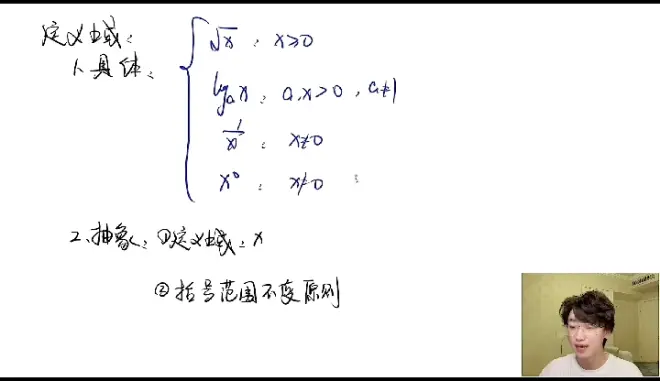 定义域：
1、具体：
√x : x≥0
logₐx : a,x>0 , a≠1
1/x : x≠0
x⁰ : x≠0 ;
2、抽象：①定义域：x
②括号范围不变原则